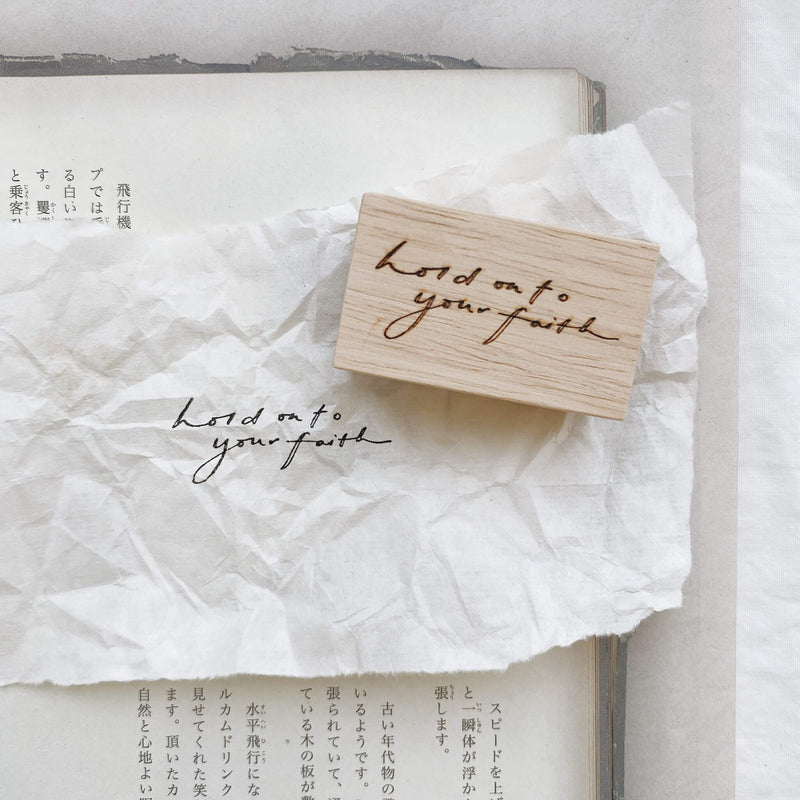 飛行機
プでは
る白い
す。
と乗客
hold on to
your faith
hold on to
your faith
スピードを上
と一瞬体が浮か
張します。
古い年代物の
いるようです。
張られていて、
ている木の板が
水平飛行にな
ルカムドリンク
見せてくれた笑
ます。頂いたカ
自然と心地よい